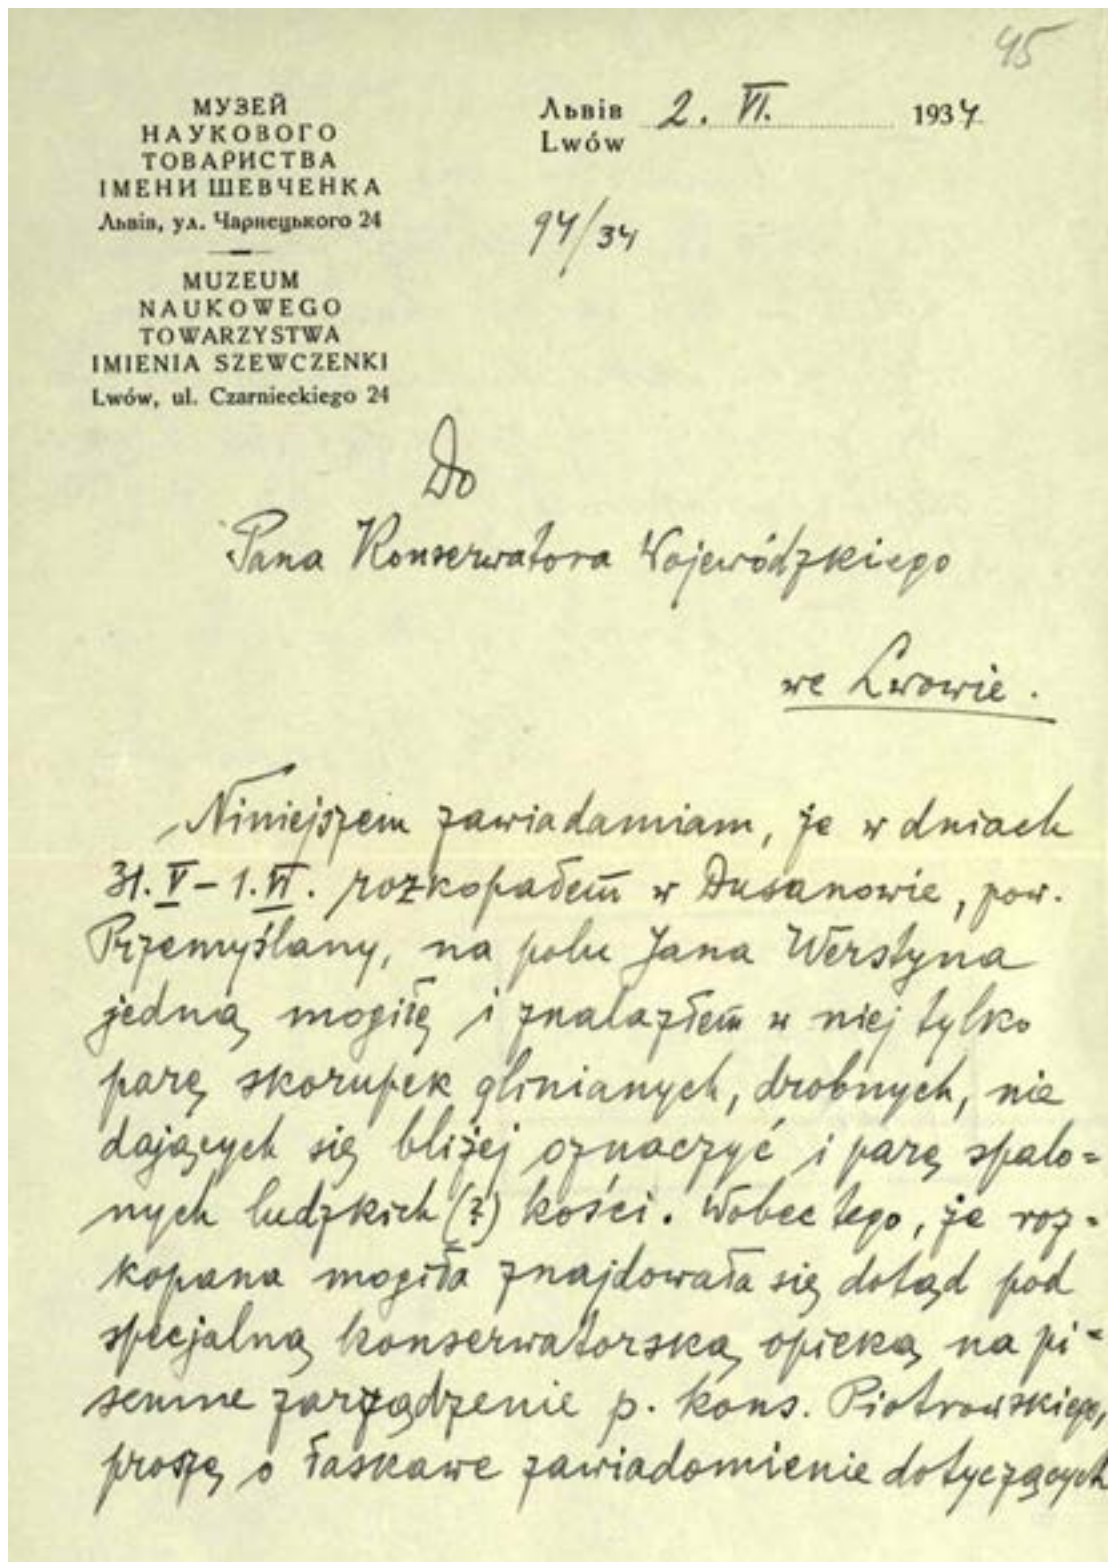 45
МУЗЕЙ
НАУКОВОГО
ТОВАРИСТВА
ІМЕНИ ШЕВЧЕНКА
Львів, ул. Чарнецького 24
MUZEUM
NAUKOWEGO
TOWARZYSTWA
IMIENIA SZEWCZENKI
Lwów, ul. Czarnieckiego 24
Львів 2. VI. 1934
Lwów
94/34
Do
Pana Konserwatora Wojewódzkiego
we Lwowie.
Niniejszem zawiadamiam, że w dniach
31. V – 1. VI. rozkopałem w Dusanowie, pow.
Przemyślany, na polu Jana Werstyna
jedną mogiłę i znalazłem w niej tylko
parę skorupek glinianych, drobnych, nie
dających się bliżej oznaczyć i parę spalo=
nych ludzkich (?) kości. Wobec tego, że roz=
kopana mogiła znajdowała się dotąd pod
specjalną konserwatorską opieką na pi=
semne zarządzenie p. kons. Piotrowskiego,
proszę o łaskawe zawiadomienie dotyczących